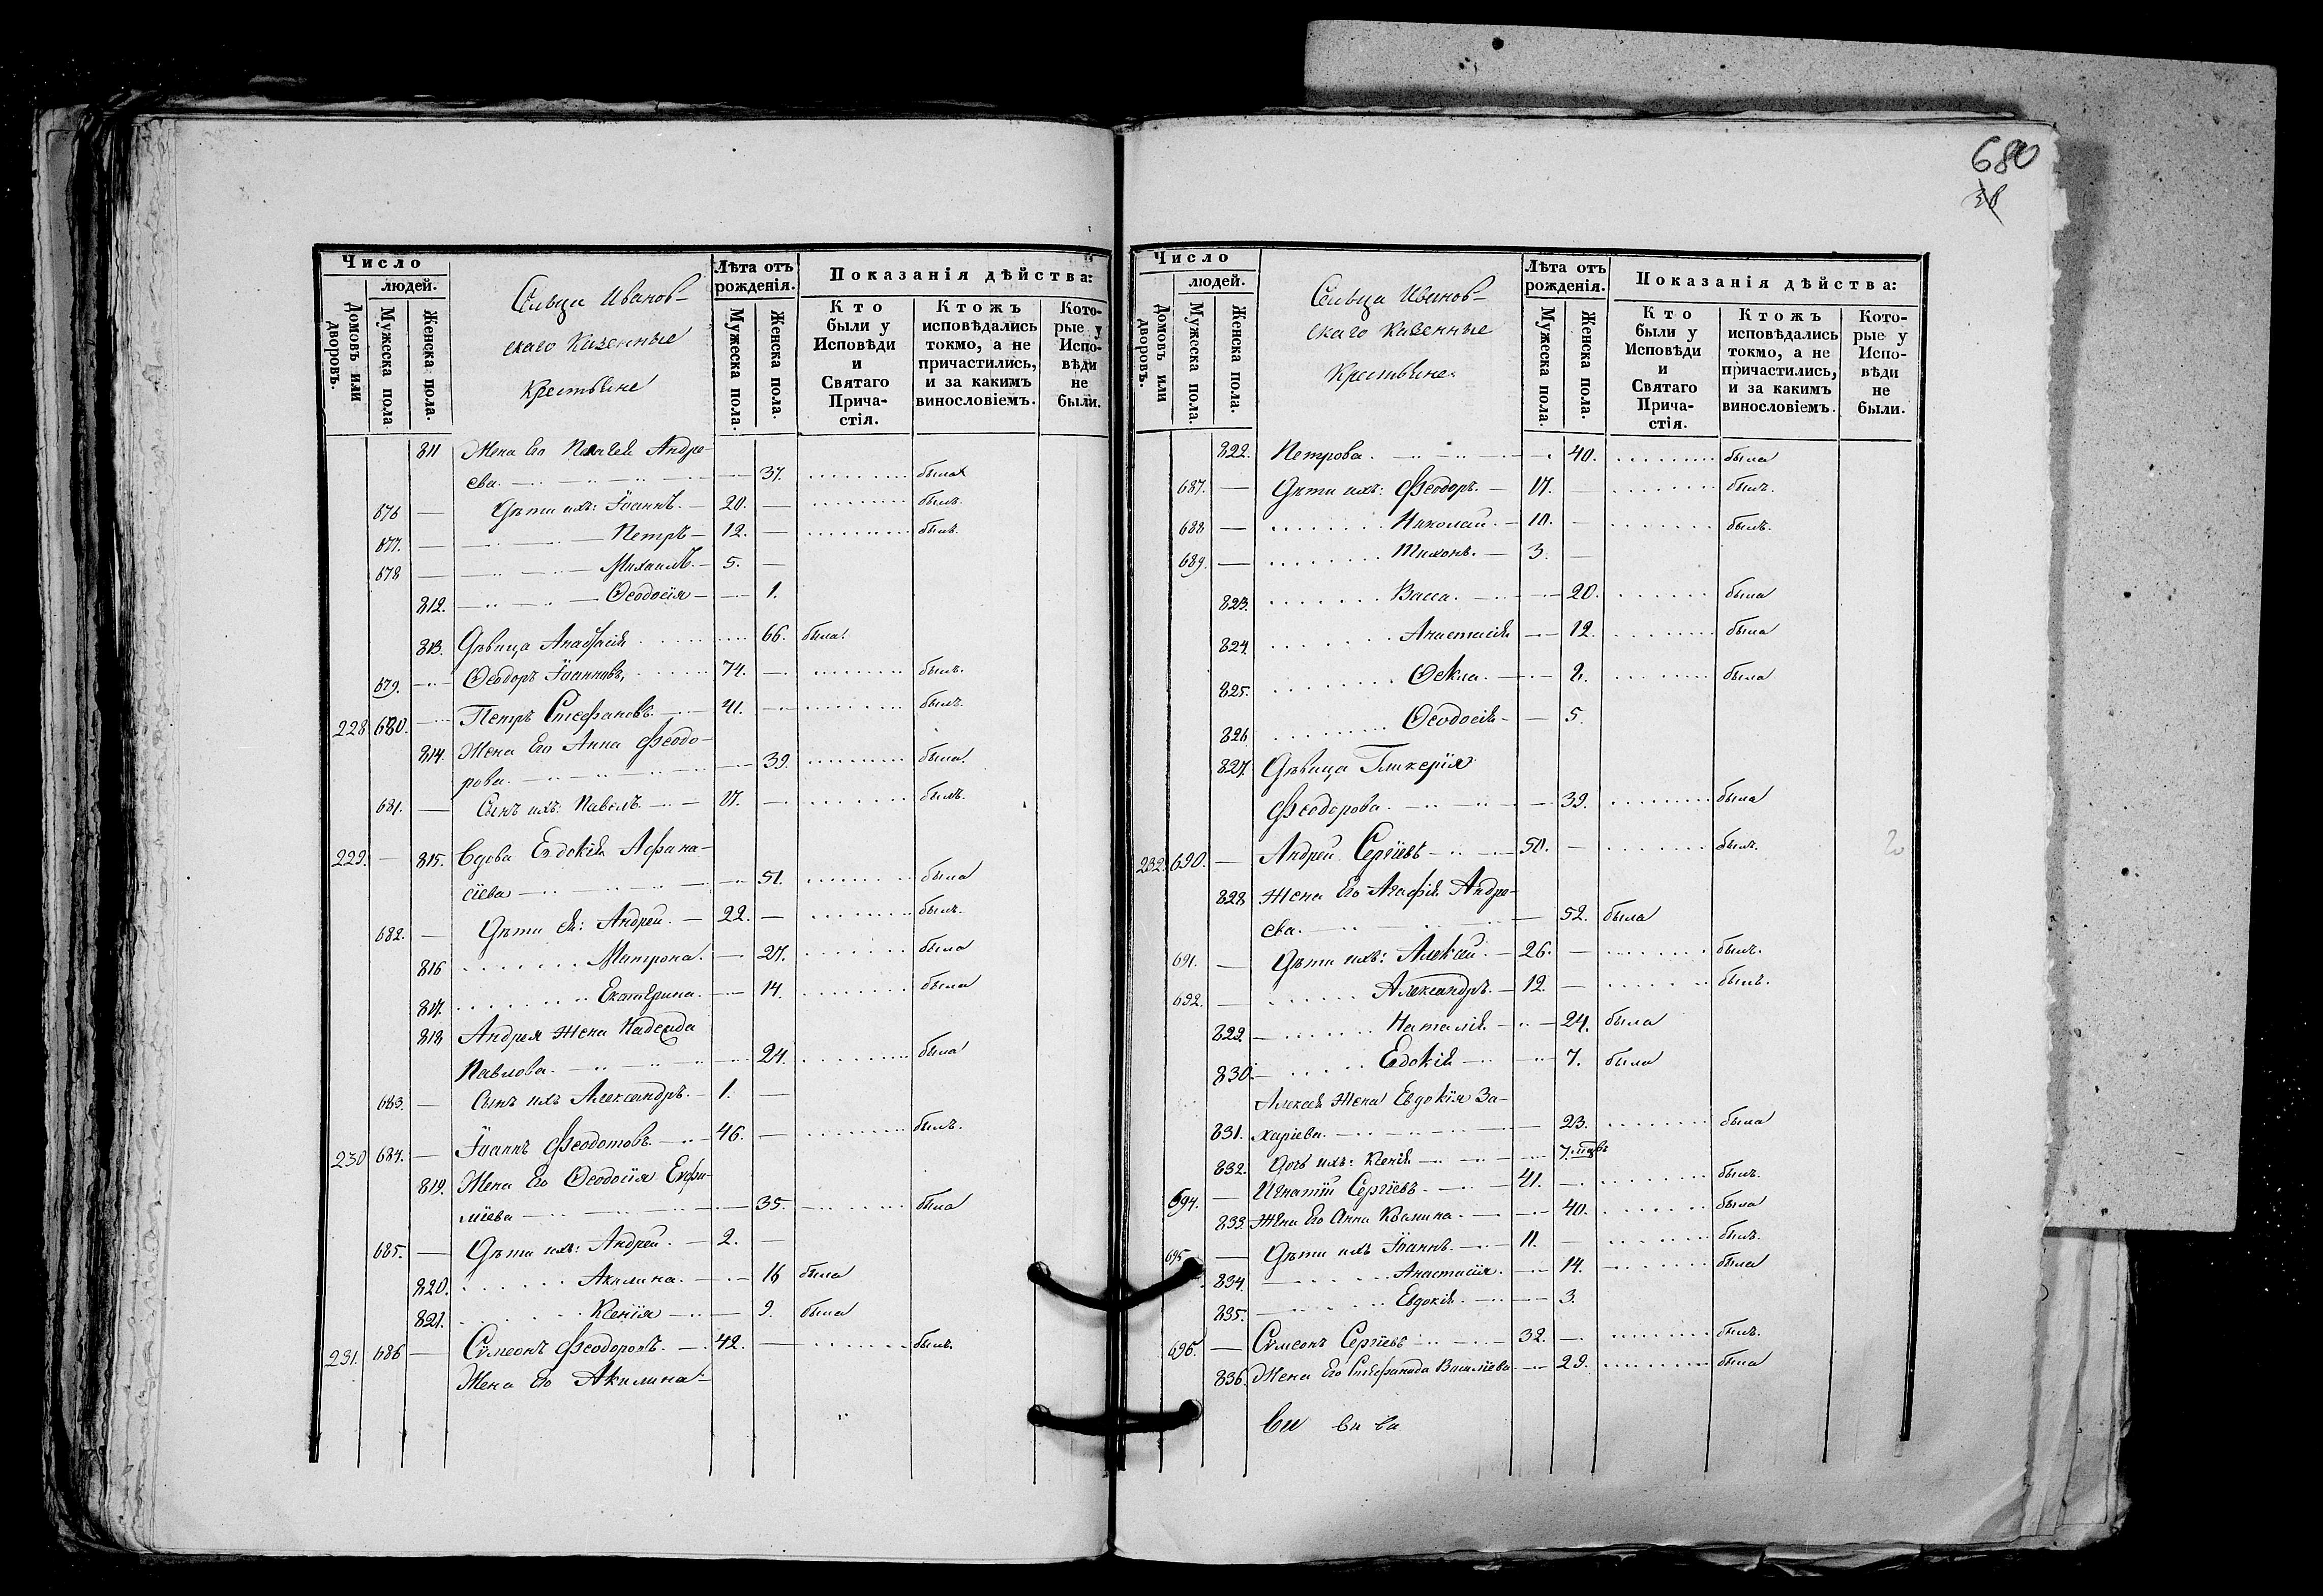 680
38
Число
людей.
Домовъ или дворовъ.
Мужеска пола
Женска пола.
Сельца Иванов-
скаго Казенные
Крестьяне
Лѣта отъ рожденія.
Мужеска пола.
Женска пола.
Показанія дѣйства:
Кто были у Исповѣди и Святаго Прича-стія.
Ктожъ исповѣдались токмо, а не причастились, и за какимъ винословіемъ.
Кото-рые у Испо-вѣди не были.
811 Жена Его Пелагея Андре-
ева. 37. была
676 Дѣти ихъ: Іоаннъ. 20. былъ.
677. Петръ 12. былъ.
678 Михаилъ. 5.
812. Ѳеодосія 1.
813. Дѣвица 66. была.
679. Ѳеодоръ Іоанновъ, 74. былъ.
228 680. Петръ Стефановъ. 41. былъ.
814. Жена Его Анна Феодо-
рова. 39. была.
681. Сынъ ихъ: Павелъ. 17. былъ.
229. 815. Вдова Евдокія Афана-
сіева 51. была
682. Дѣти ея: Андрей. 22. былъ.
816 Матрона. 27. была
817. Екатерина. 14. была
818 Андрея Жена Надежда
Павлова. 24. была
683. Сынъ ихъ Александръ. 1.
230 684. Іоаннъ Феодотовъ. 46. былъ.
819. Жена Его Ѳеодосія Евфи-
міева 35. была
685. Дѣти ихъ: Андрей. 2.
820. Акилина. 16 была
821. Ксенія 9. была
231. 686 Сѵмеонъ Феодоровъ. 42. былъ.
Жена Его Акилина
Число
людей.
Домовъ или дворовъ.
Мужеска пола.
Женска пола.
Сельца Иванов-
скаго Казенные
Крестьяне.
Лѣта отъ рожденія.
Мужеска пола
Женска пола.
Показанія дѣйства:
Кто были у Исповѣди и Святаго Прича-стія.
Ктожъ исповѣдались токмо, а не причастились, и за какимъ винословіемъ.
Кото-рые у Испо-вѣди не были.
822. Петрова. 40. была
687. Дѣти ихъ: Феодоръ. 17. былъ.
688 Николай. 10. былъ.
689. Тихонъ. 3.
823. Васса. 20. была
824. Анастасія 12. была
825. Ѳекла. была
826. Ѳеодосія 5.
827. Дѣвица Гликерія
Феодорова. 39. была
232. 690. Андрей Сергіевъ 50. былъ.
828 Жена Его Агафія Андре-
ева. 52. была
691. Дѣти ихъ: Алексей. 26. былъ.
692. Александръ. 12. былъ.
829. Наталія 24. была
830. Евдокія 7. была
Алексея Жена Евдокія За-
831. харіева. 23. была
832. Дочь ихъ: Ксенія 7. мцвъ
694. Игнатій Сергіевъ. 41. былъ.
833. Жена Его Анна Козмина. 40. была
695 Дѣти ихъ Іоаннъ. 11. былъ.
834. Анастасія. 14. была
835. Евдокія. 3.
696. Сѵмеонъ Сергіевъ 32. былъ.
836. Жена Его Стефанида Василіева. 29. была